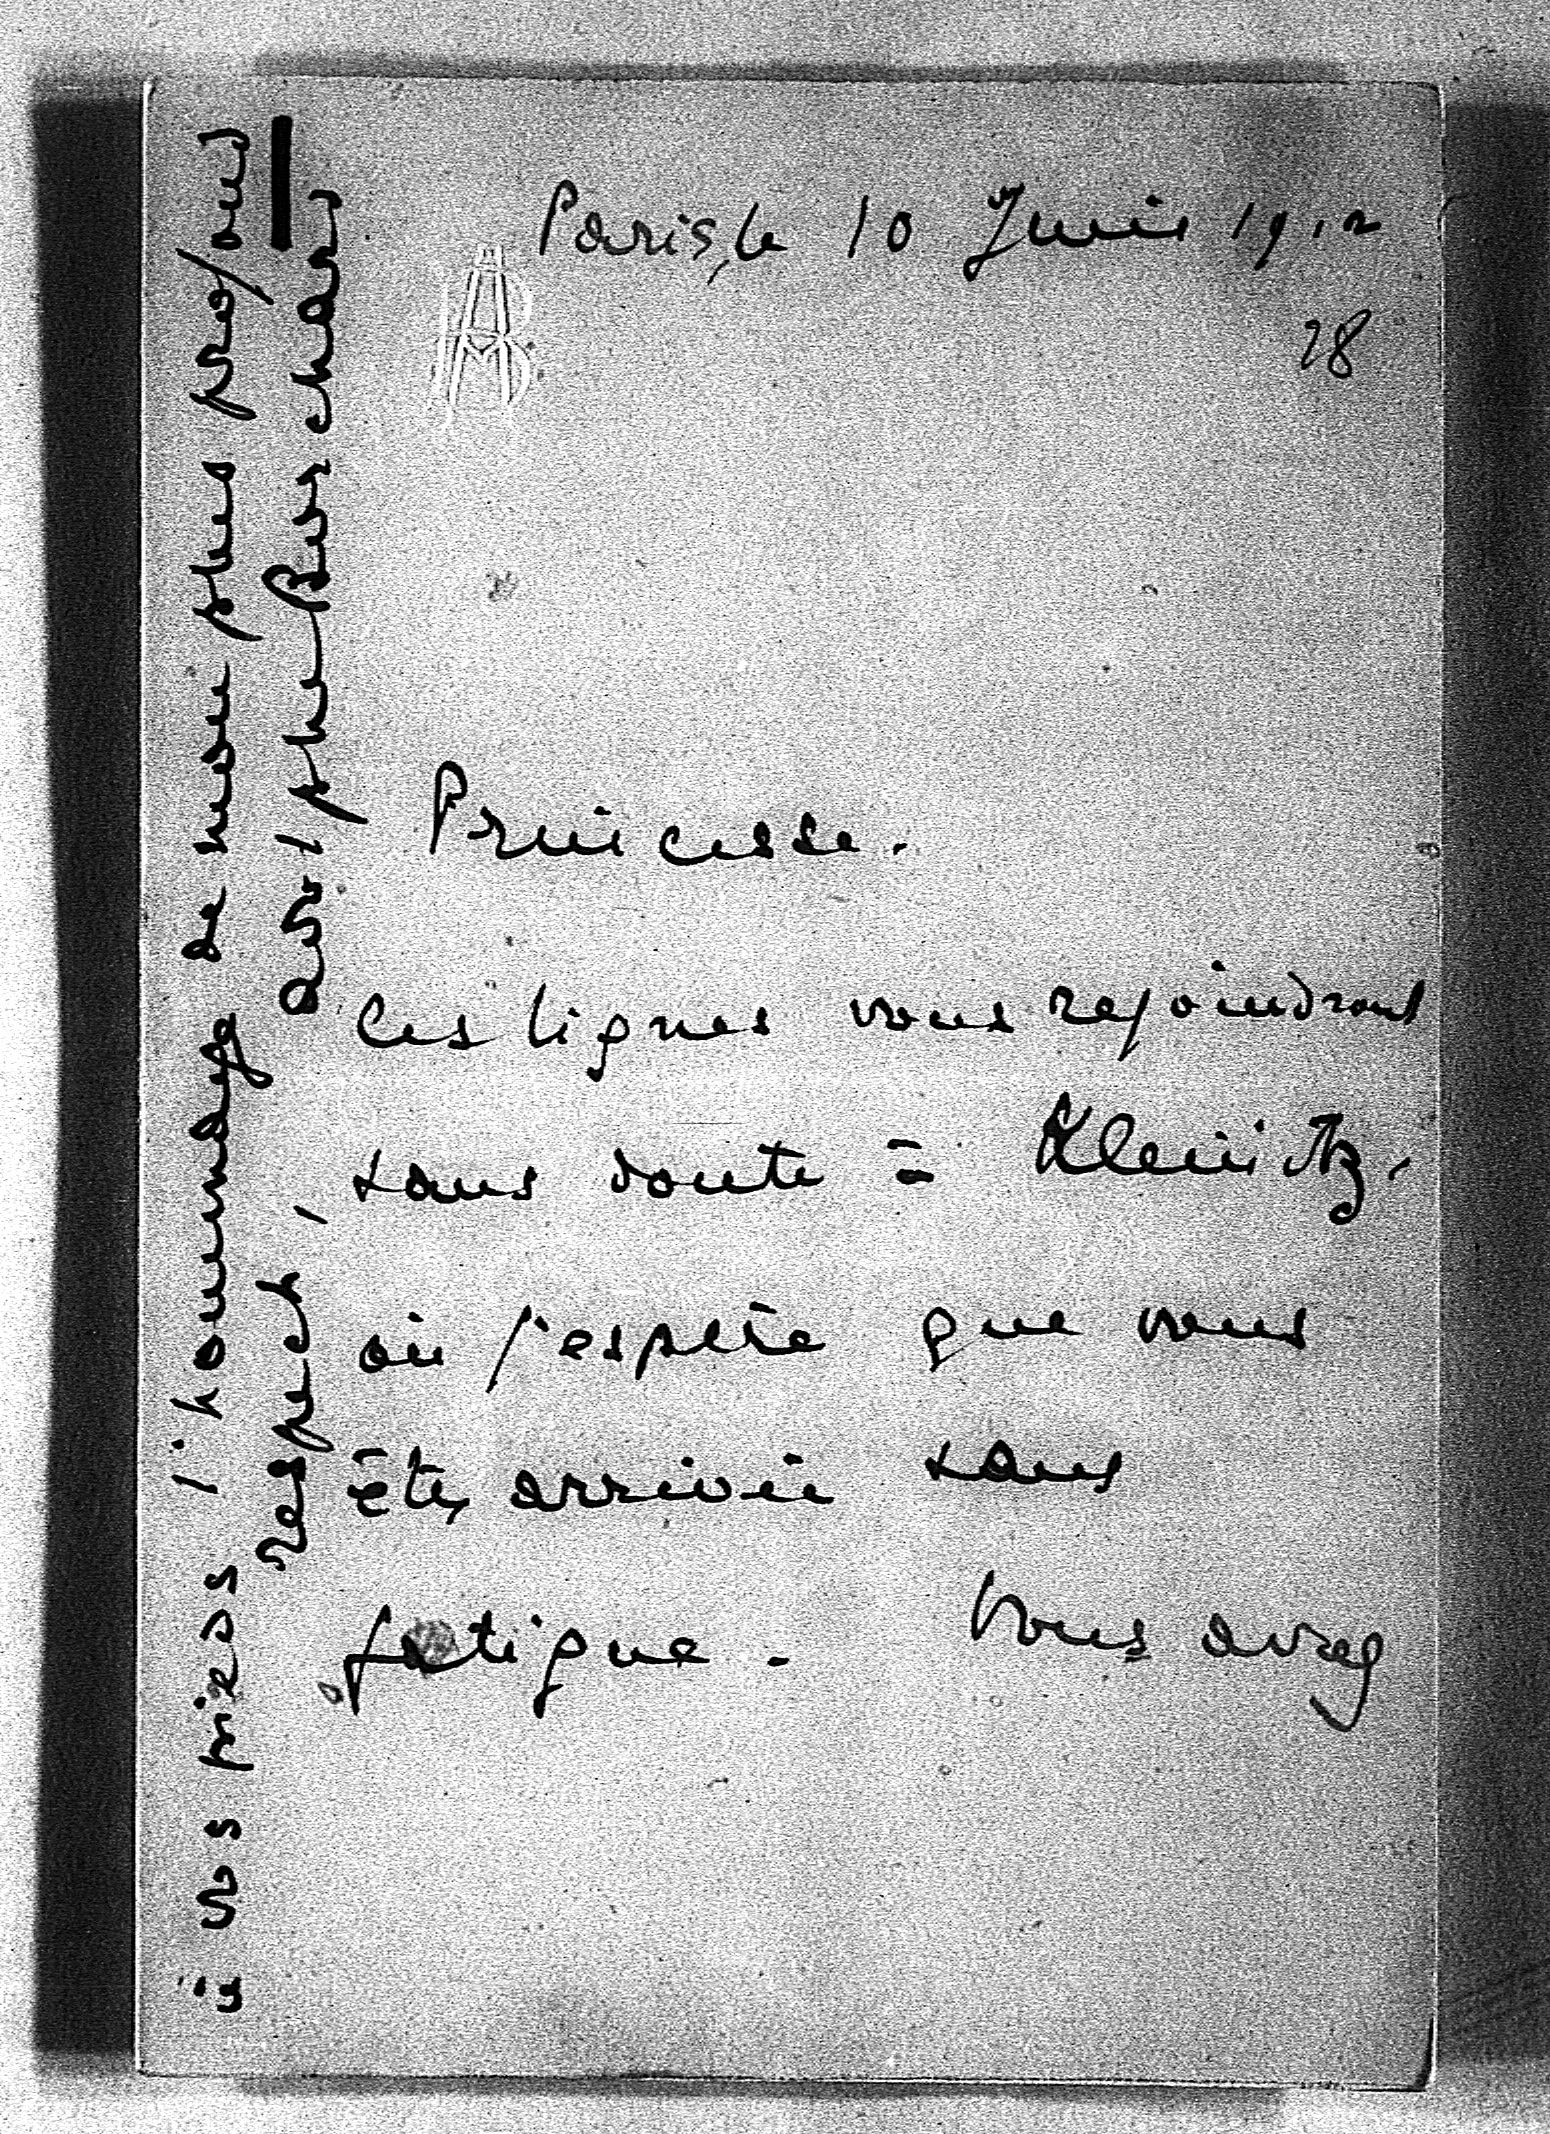 Paris, le 10 Juin 1912
28
Princesse.
Ces lignes vous rejoindront
sans doute à Kleinitz,
où j'espère que vous
êtes arrivée sans
fatigue. Vous avez
à vos pieds l'hommage de mon plus profond
respect,